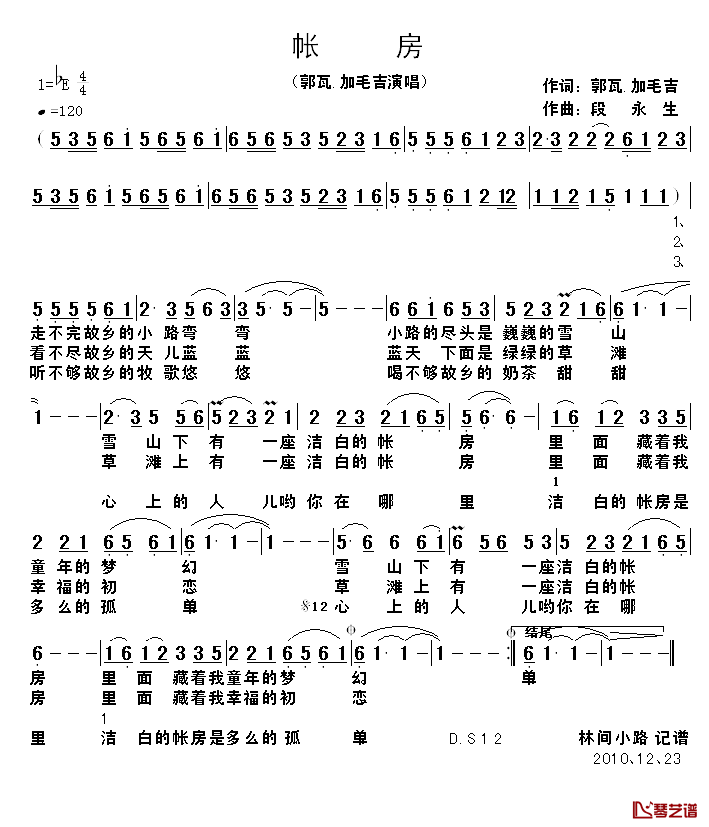 帐 房
(郭瓦.加毛吉演唱)
1=♭E 4/4
♩=120
作词：郭瓦.加毛吉
作曲：段 永 生
( 5 3 5 6 1 5 6 5 6 1 | 6 5 6 5 3 5 3 5 2 3 1 6 | 5 5 5 6 1 2 3 | 2· 3 2 2 6 1 2 3 |
5 3 5 6 1 5 6 5 6 1 | 6 5 6 5 3 5 2 3 1 6 | 5 5 5 6 1 2 12 | 1 1 2 1 5 1 1 1 ) |
1、
2、
3、
5 5 5 5 6 1 | 2· 3 5 6 3 | 3 5· 5· | 5 - - - | 6 6 1 6 5 3 | 5 2 3 2 1 6 | 6 1· 1· |
走不完故乡的小 路弯 弯 小路的尽头是 巍巍的雪 山
看不尽故乡的天 儿蓝 蓝 蓝天 下面是绿绿的草 滩
听不够故乡的牧 歌悠 悠 喝不够故乡的 奶茶 甜 甜
1 - - - | 2· 3 5 5 6 | 5 2 3 2 1 | 2 2 3 2 1 6 5 | 5 6· 6· | 1 6 1 2 3 3 5 |
雪 山 下 有 一座洁 白的 帐 房 里 面 藏着我
草 滩 上 有 一座洁 白的 帐 房 里 面 藏着我
1
心 上 的 人 儿哟你 在 哪 里 洁 白的 帐房是
2 2 1 6 5 6 1 | 6 1· 1· | 1 - - - | 5· 6 6 6 1 | 6 5 5 6 2 3 5 | 5 2 2 3 2 1 6 5 |
童 年的 梦 幻 雪 山 下 有 一座洁 白的 帐
幸 福的 初 恋 草 滩 上 有 一座洁 白的 帐
多 么的 孤 单 𝄋12 心 上 的 人 儿哟你 在 哪
6 - - | 1 6 1 2 3 3 5 | 2 2 1 6 5 6 1 | 6 1· 1· | 1 - - :‖ 结尾 6 1· 1· | 1 - - - ‖
房 里 面 藏着我童年的梦 幻 单
房 里 面 藏着我幸福的初 恋
1
里 洁 白的帐房是多么的 孤 单 D.S12 林间小路 记谱
2010、12、23
琴艺谱